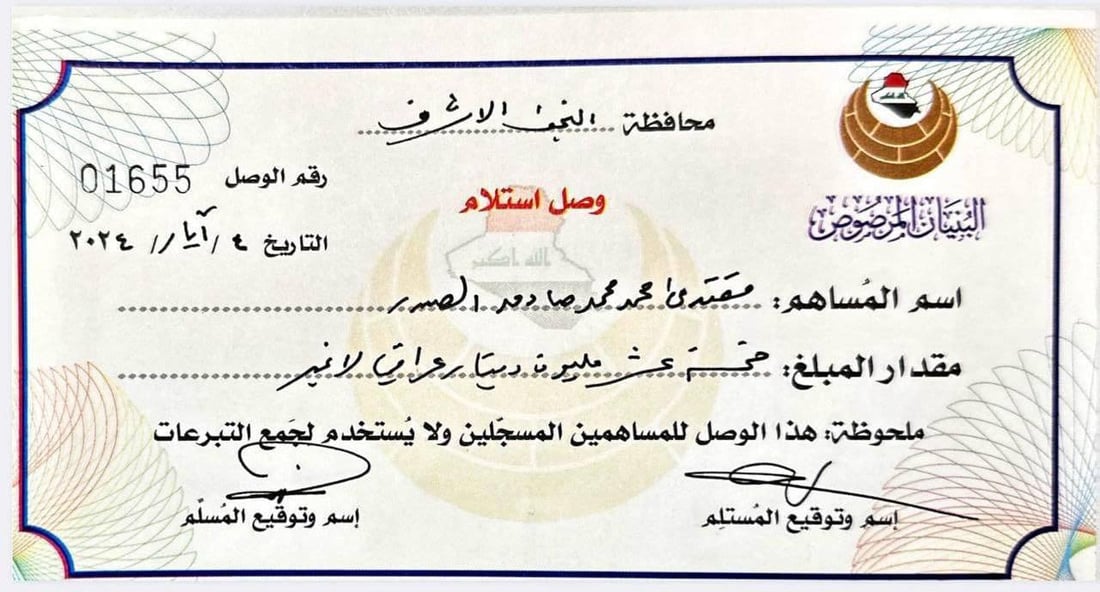 محافظة النجف الاشرف
البُنيَان المَرصُوص
رقم الوصل 01655
وصل استلام
التاريخ ٤ / أيار / ٢٠٢٤
الله أكبر
اسم المُساهم: مقتدى محمد محمد صادق الصدر
مقدار المبلغ: خمسة عشر مليون دينار عراقي لا غير
ملحوظة: هذا الوصل للمساهمين المسجّلين ولا يُستخدم لجَمع التبرعات
إسم وتوقيع المُستلِم
إسم وتوقيع المُسلّم